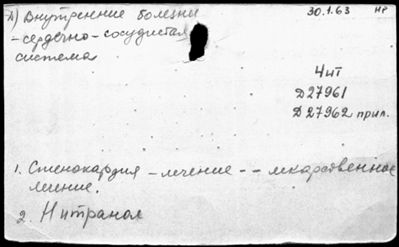 А) Внутренние болезни 30.1.63 НР
-сердечно-сосудистая
система
Чит
Д27961
Д27962 прил.
1. Стенокардия - лечение -- лекарсовенное
ление.
2. Нитранол